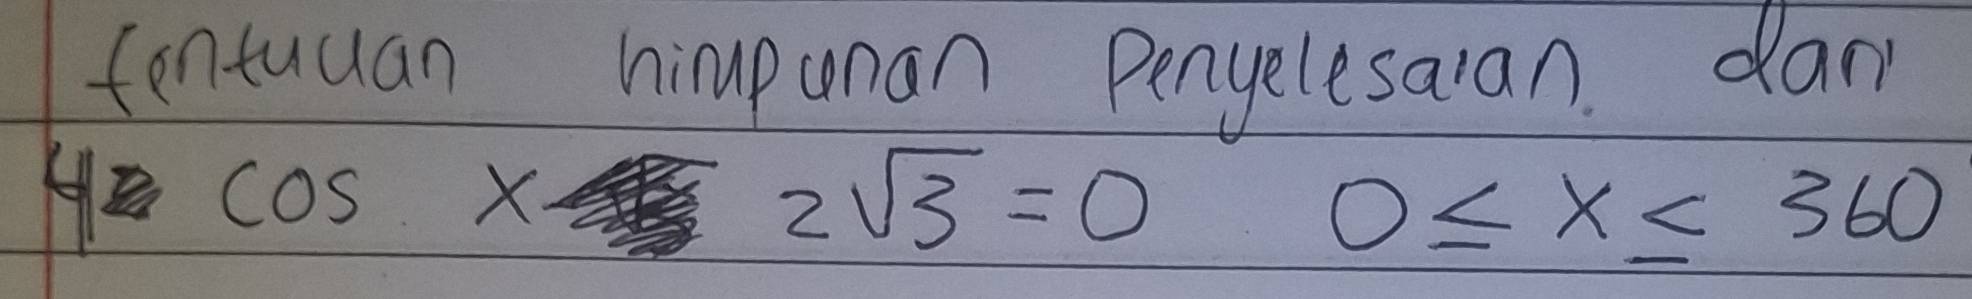 tentukan himpunan Penyelesaian. dari
4 cos x 2√3 = 0 0 ≤ x ≤ 360